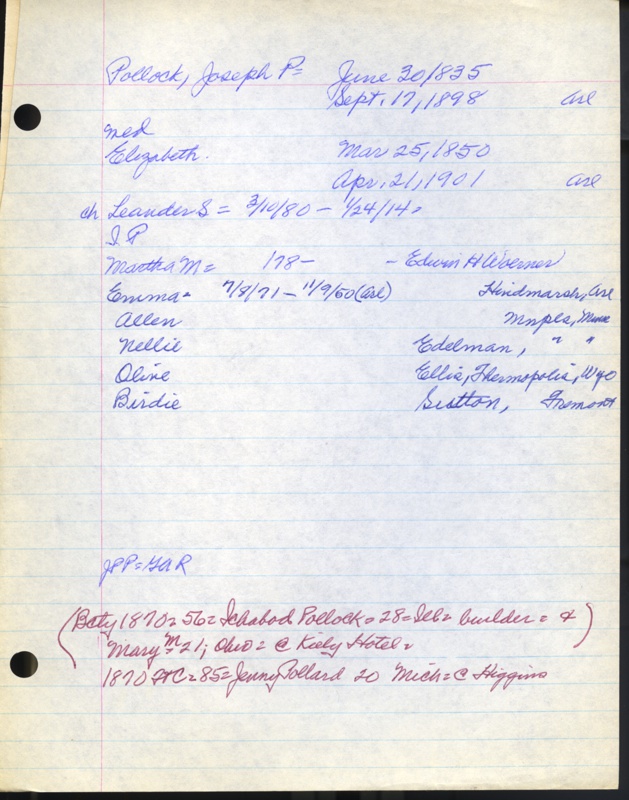 Pollock, Joseph P= June 30/835
Sept. 17, 1898 Arl
med
Elizabeth. Mar 25, 1850
Apr. 21, 1901 Arl
ch Leander S = 3/10/80 - 1/24/14=
I P
Martha M = 178- - Edwin H Woerner
Emma= 7/8/71 - 11/9/50 (Arl) Hindmarsh, Arl
Allen Mnpls, Minn
Nellie Edelman, " "
Olive Ellis, Thermopolis, Wyo
Birdie Sutton, Fremont
JPP = GAR
(Bcty 1870= 56= Ichabod Pollock= 28= Ill= builder= &
Mary M= 21; Ohio= C Kiely Hotel=)
1870 FtC= 85= Jenny Pollard 20 Mich= C Higgins